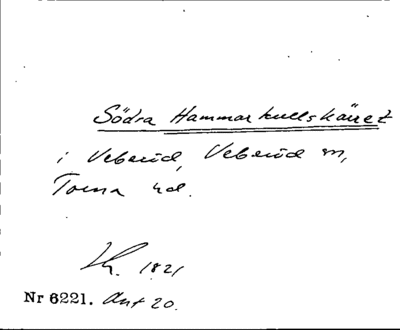 Södra Hammarkullskärret
i Veberöd, Veberöd sn,
Torna hd.
1821
Nr 6221. Ant 20.